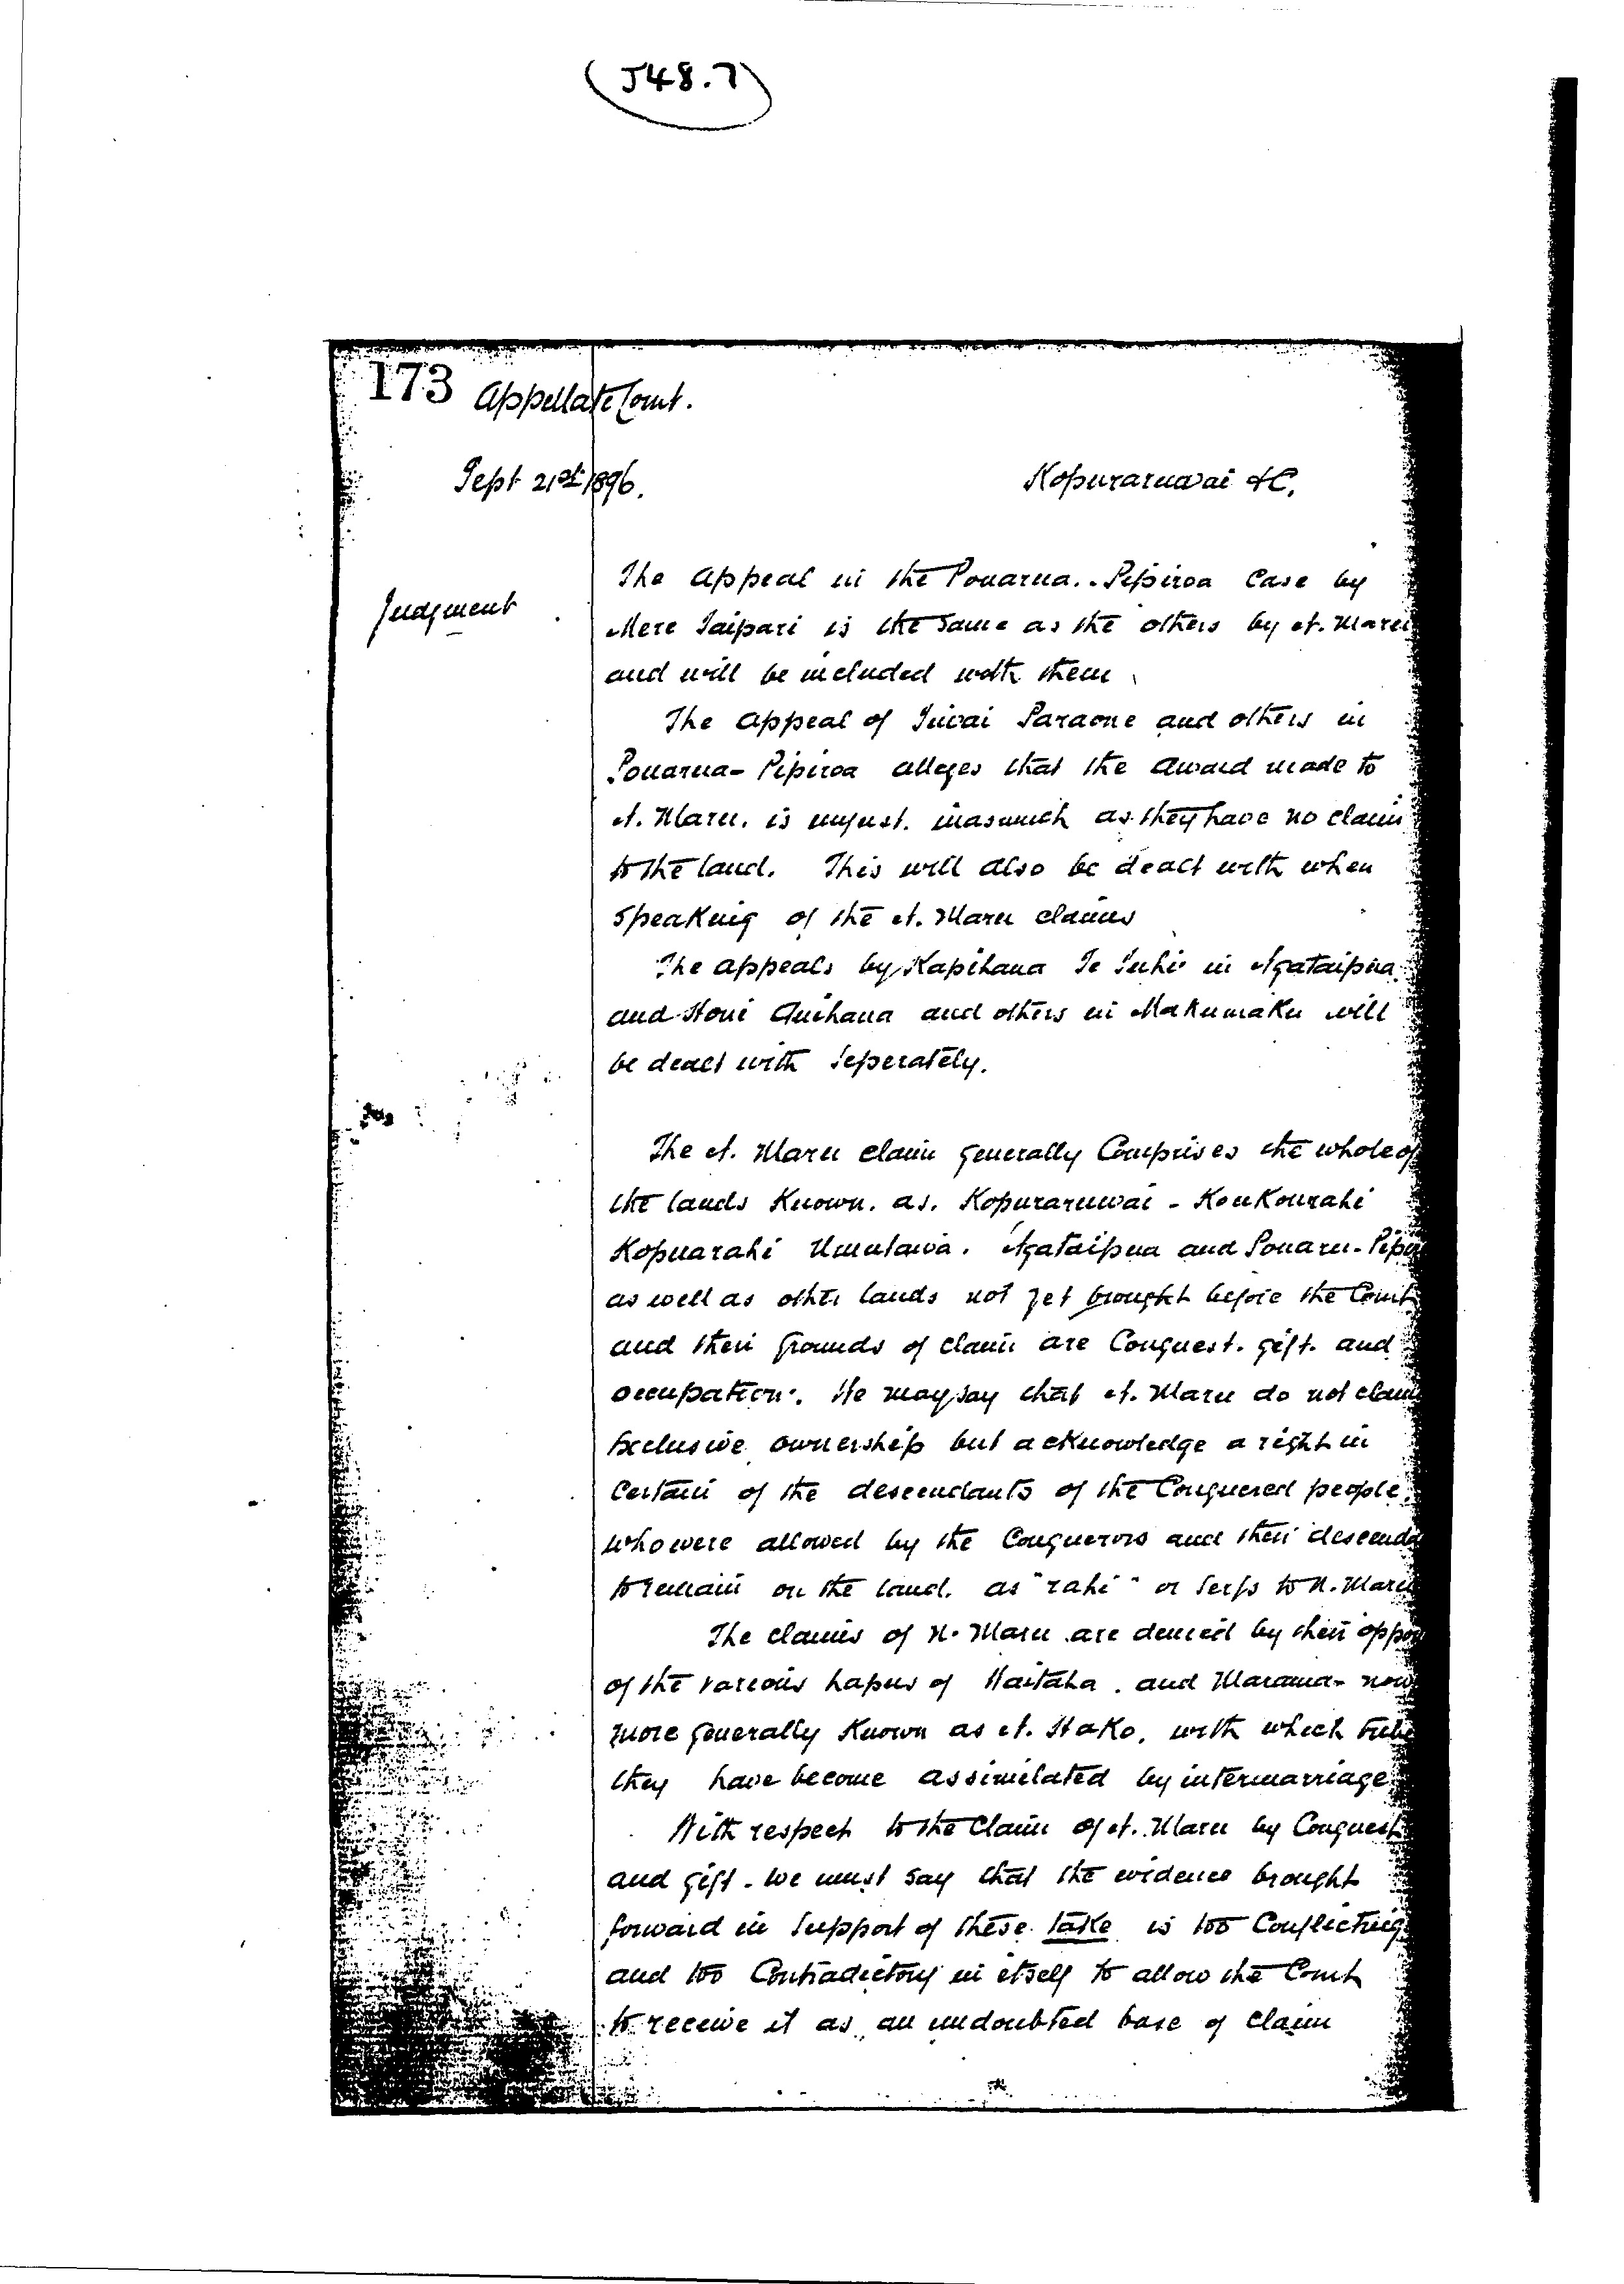 (J48.7)
173 Appellate Court.
Sept 21st 1896. Kopuraruwai &C.
Judgment
The Appeal in the Pouarua.. Pipiroa Case by
Mere Taipari is the same as the others by N. Maru
and will be included with them
The appeal of Tiwai Paraone and others in
Pouarua - Pipiroa alleges that the award made to
N. Maru. is unjust. inasmuch as they have no claim
to the land. This will also be dealt with when
speaking of the N. Maru claims
The appeals by Kapihana Te Tuhi in Ngataipua
and Honi and others in Makumaku will
be dealt with seperately.
The N. Maru claim generally Comprises the whole of
the lands Known. as. Kopuraruwai - Koukourahi
Kopuarahi Umutawa. Ngataipua and Pouaru - Pipi
as well as other lands not yet brought before the Court
and their grounds of claim are Conquest. gift. and
occupation. We may say that N. Maru do not claim
Exclusive ownership but acknowledge a right in
Certain of the descendants of the Conquered people
who were allowed by the Conquerors and their descenda
to remain on the land. as "rahi" or Serfs to N. Maru
The claims of N. Maru are denied by their oppo
of the various hapus of Waitaha. and Marama - now
more generally Known as N. Hako. with which tribe
they have become assimilated by intermarriage
With respect to the Claim of N. Maru by Conquest
and gift - we must say that the evidence brought
forward in support of these take is too Conflicting
and too Contradictory in itself to allow the Court
to receive it as an undoubted base of claim